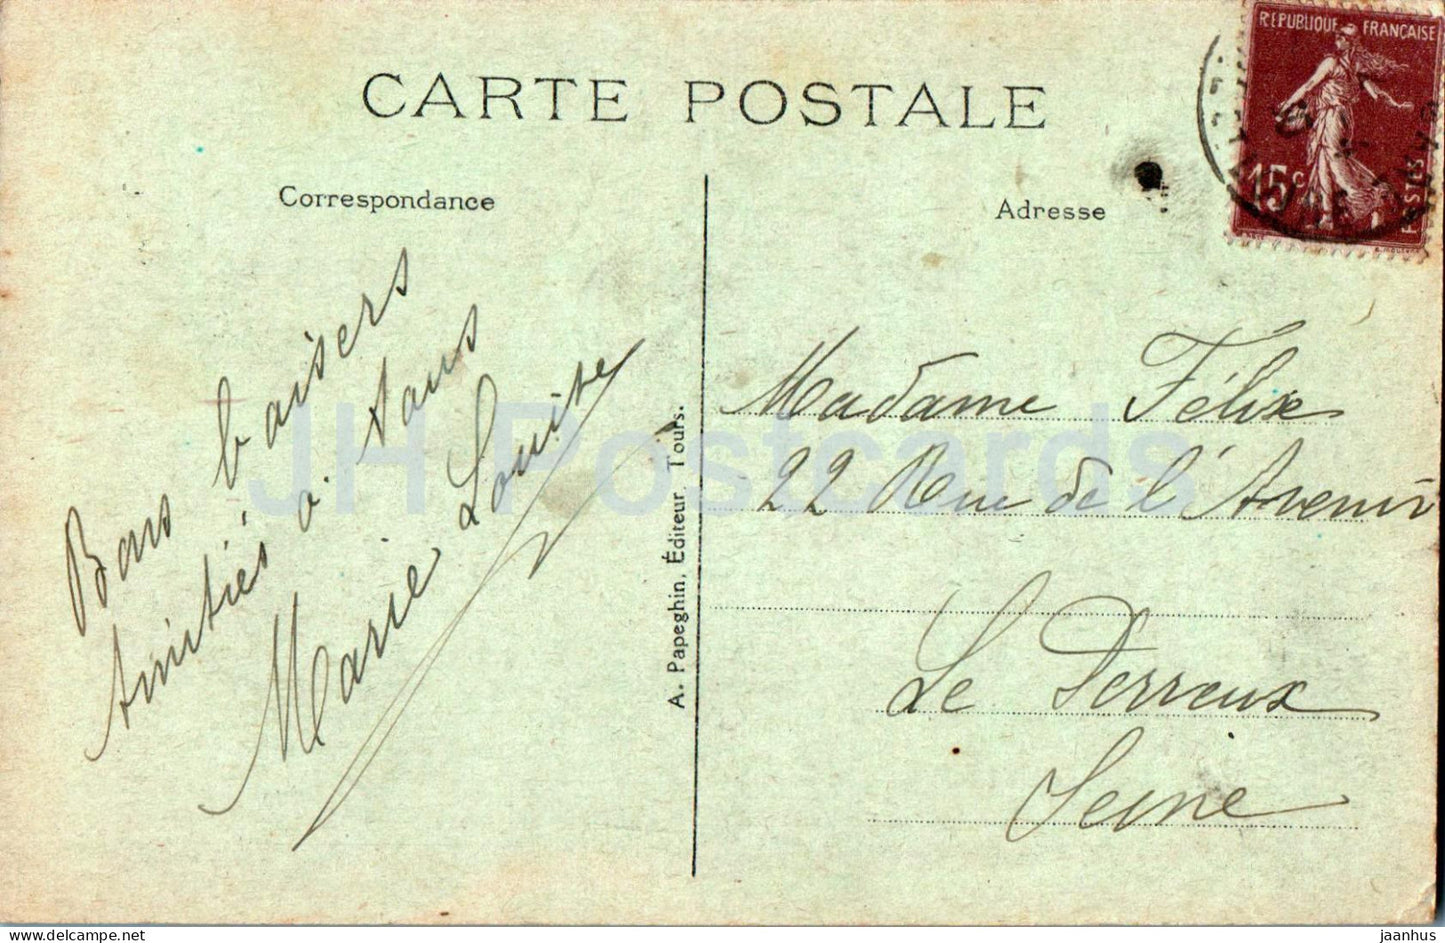 CARTE POSTALE
RÉPUBLIQUE FRANÇAISE
15c
POSTES
Correspondance
Adresse
Bons baisers
Amitiés à tous
Marie Louise
A. Papeghin, Éditeur, Tours.
Madame Félix
22 Rue de l'Avenir
Le Perreux
Seine
JH Postcards
www.delcampe.net
jaanhus